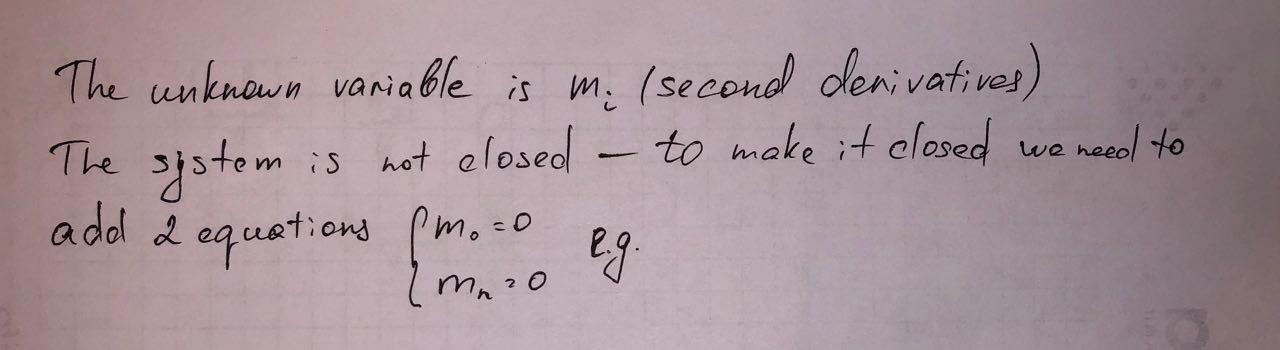 The unknown variable is mᵢ (second derivatives)
The system is not closed — to make it closed we need to
add 2 equations { m₀ = 0 e.g.
mₙ = 0